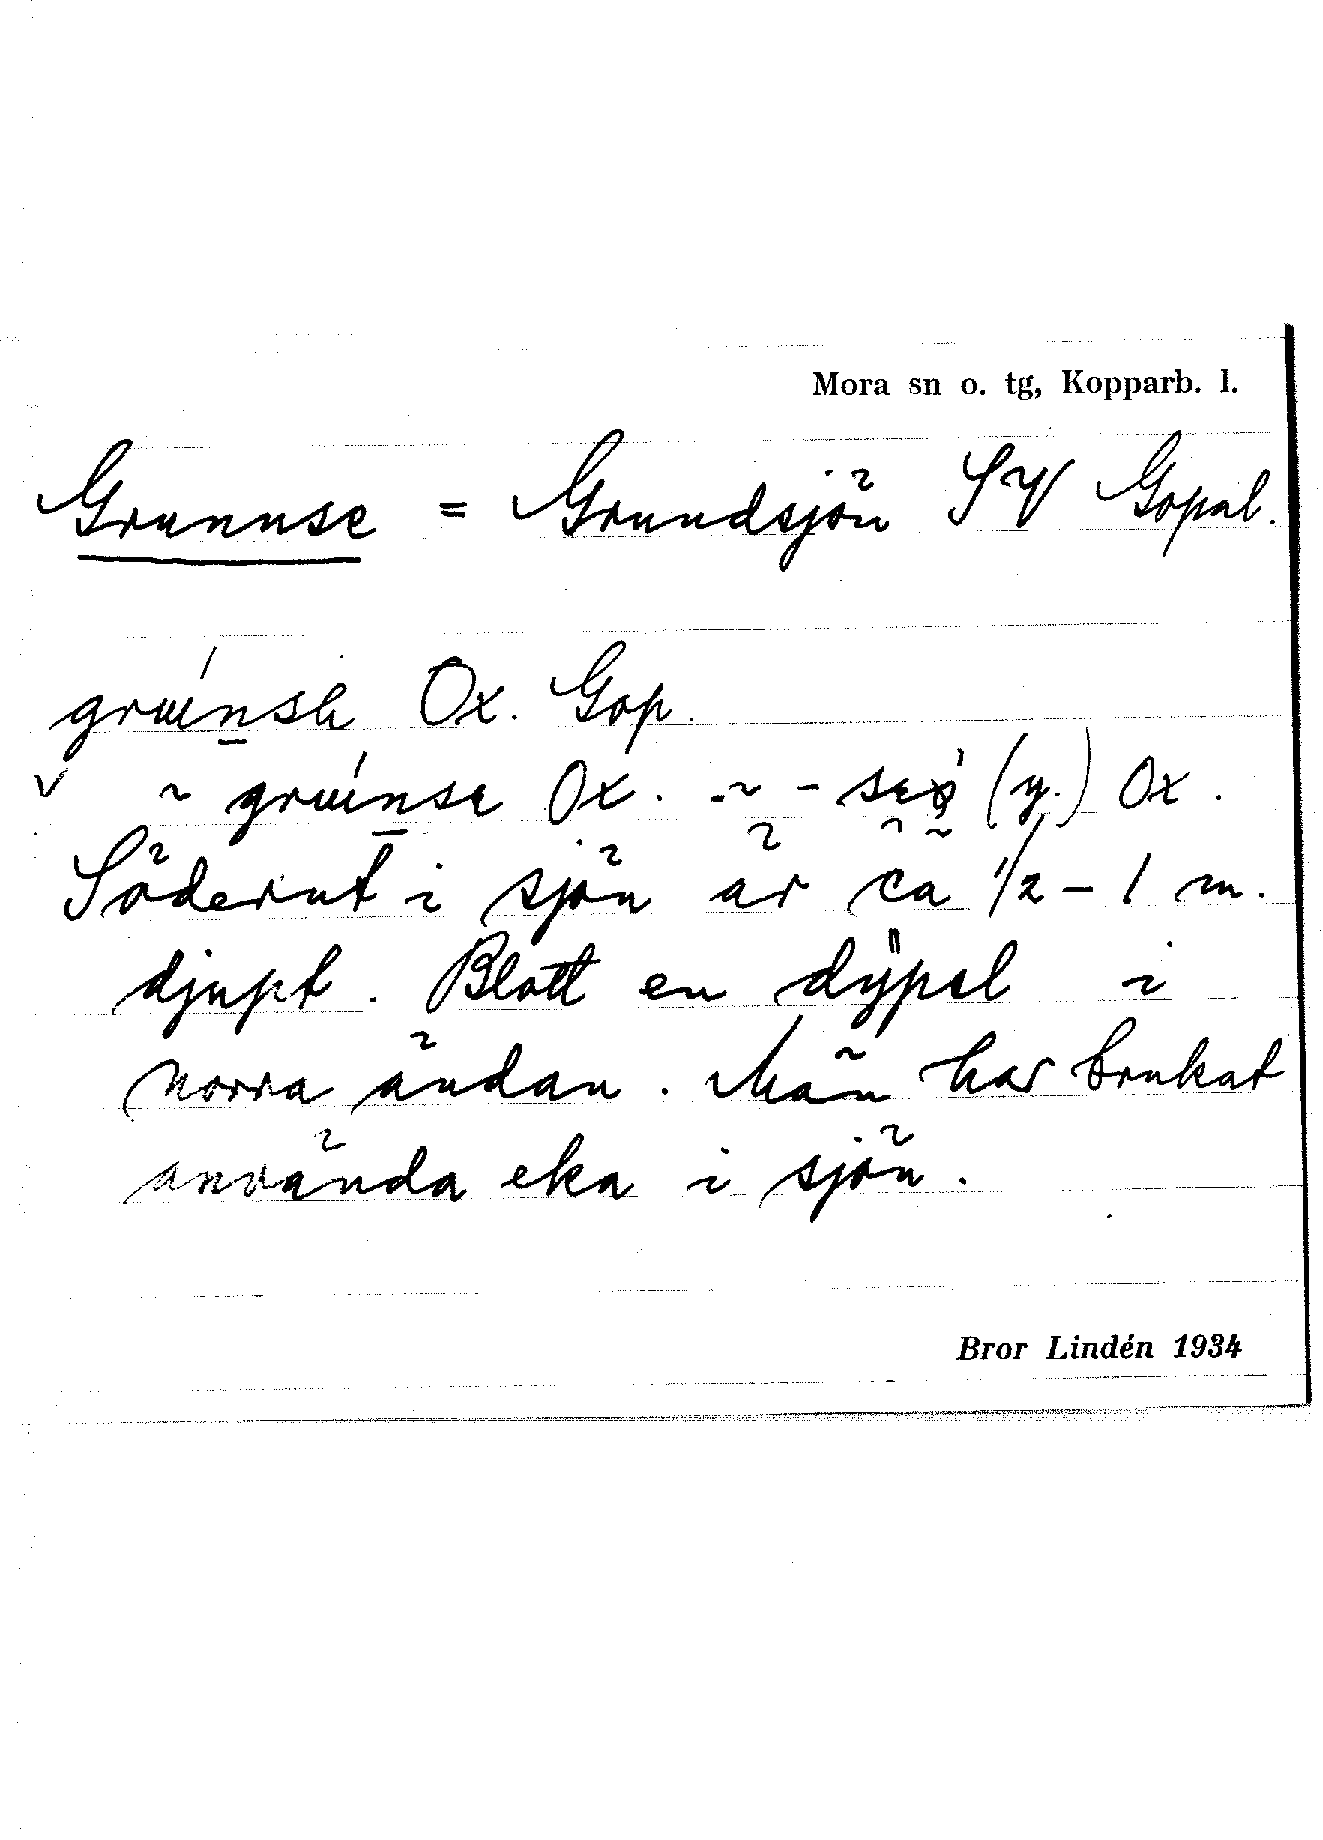 Mora sn o. tg, Kopparb. l.
Grunnse = Grundsjön SV Gopal.
Ox. Gop.
~ Ox. ~ - (y.) Ox.
Söderut i sjön är ca 1/2 - 1 m.
djupt. Blott en dÿpel i
norra ändan. Man har brukat
använda eka i sjön.
Bror Lindén 1934